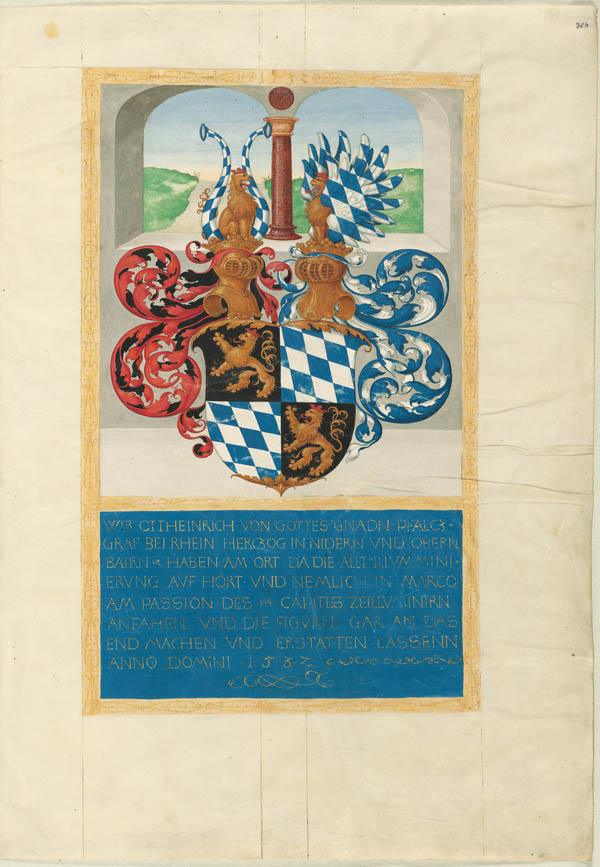 308.
1532
WIR OTTHEINRICH VON GOTTES GNADN PFALCZ-
GRAF BEI RHEIN HERCZOG IN NIDERN VND OBERN
BAIRN ꝛc HABEN AM ORT DA DIE ALLT ILLVMMINI-
ERVNG AVF HÖRT VND NEMLICH IN MARCO
AM PASSION DES 14 CAPITLS ZEILLVMINIRN
ANFAHEN VND DIE FIGVRN GAR AN DAS
END MACHEN VND ERSTATTEN LASSENN
ANNO DOMINI · 1532